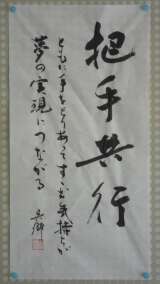 把手共行
ともに手をとりあってすすむ気持ちが
夢の実現につながる